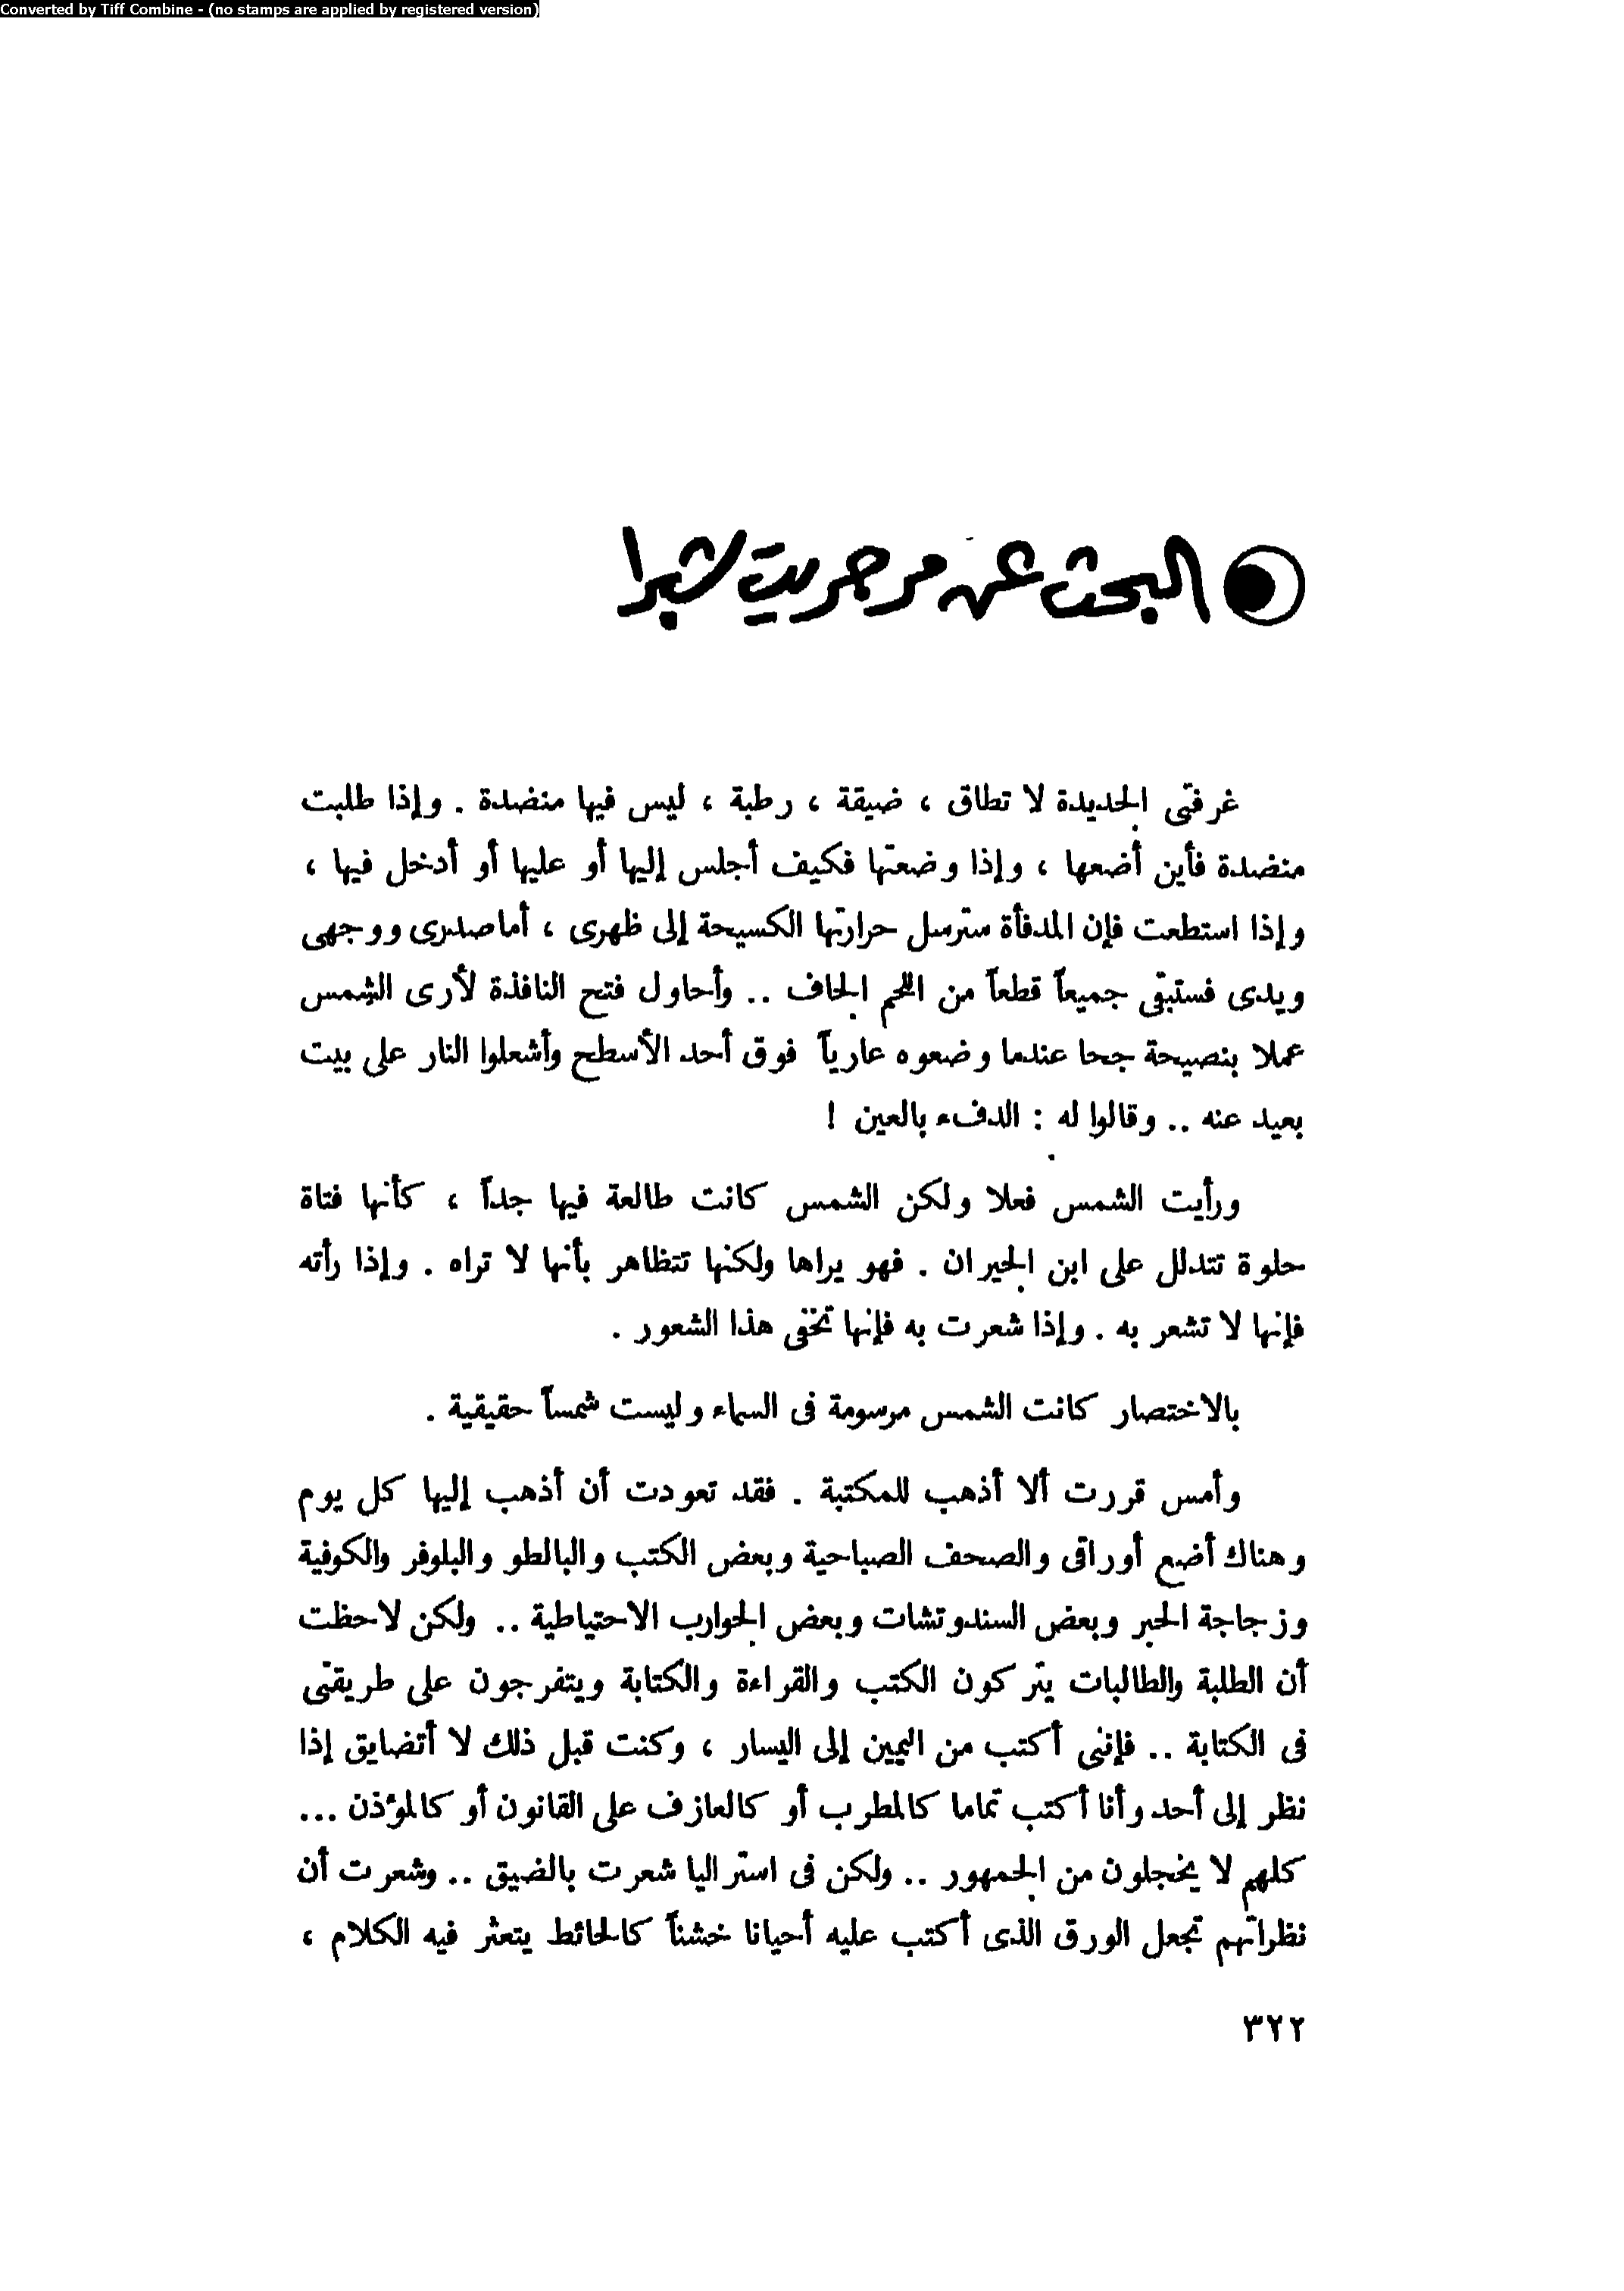 Converted by Tiff Combine - (no stamps are applied by registered version)
البحث عن مرجريت شبرا
غرفتى الجديدة لا تطاق ، ضيقة ، رطبة ، ليس فيها منضدة . وإذا طلبت
منضدة فأين أضعها ، وإذا وضعتها فكيف أجلس إليها أو عليها أو أدخل فيها ،
وإذا استطعت فإن المدفأة سترسل حرارتها الكسيحة إلى ظهرى ، أما صدرى ووجهى
ويدى فستبقى جميعاً قطعاً من اللحم الجاف .. وأحاول فتح النافذة لأرى الشمس
عملا بنصيحة جحا عندما وضعوه عارياً فوق أحد الأسطح وأشعلوا النار على بيت
بعيد عنه .. وقالوا له : الدفء بالعين !
ورأيت الشمس فعلا ولكن الشمس كانت طالعة فيها جداً ، كأنها فتاة
حلوة تتدلل على ابن الجيران . فهو يراها ولكنها تتظاهر بأنها لا تراه . وإذا رأته
فإنها لا تشعر به . وإذا شعرت به فإنها تخفى هذا الشعور .
بالاختصار كانت الشمس مرسومة فى السماء وليست شمساً حقيقية .
وأمس قررت ألا أذهب للمكتبة . فقد تعودت أن أذهب إليها كل يوم
وهناك أضع أوراقى والصحف الصباحية وبعض الكتب والبالطو والبلوفر والكوفية
وزجاجة الحبر وبعض السندوتشات وبعض الجوارب الاحتياطية .. ولكن لاحظت
أن الطلبة والطالبات يتركون الكتب والقراءة والكتابة ويتفرجون على طريقتى
فى الكتابة .. فإننى أكتب من اليمين إلى اليسار ، وكنت قبل ذلك لا أتضايق إذا
نظر إلى أحد وأنا أكتب تماما كالمطرب أو كالعازف على القانون أو كالمؤذن ...
كلهم لا يخجلون من الجمهور .. ولكن فى استراليا شعرت بالضيق .. وشعرت أن
نظراتهم تجعل الورق الذى أكتب عليه أحيانا خشناً كالحائط يتعثر فيه الكلام ،
٣٢٢